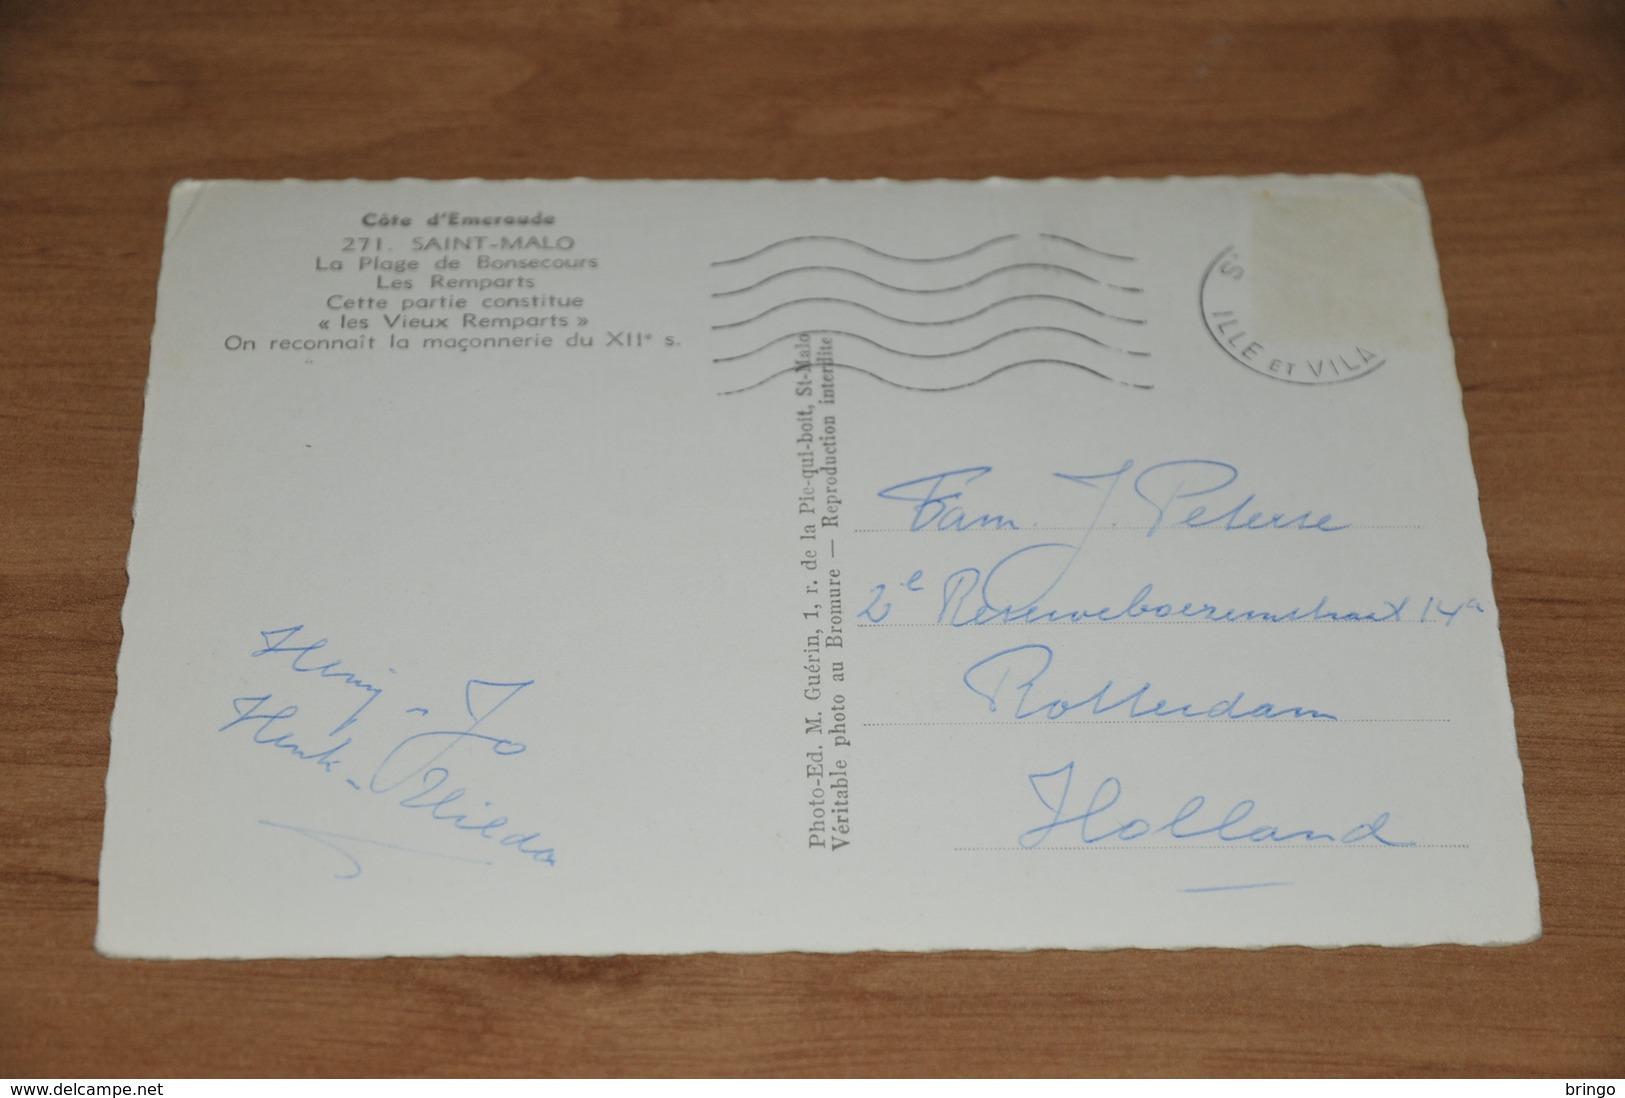 Côte d'Emeraude
271. SAINT-MALO
La Plage de Bonsecours
Les Remparts
Cette partie constitue
« les Vieux Remparts »
On reconnaît la maçonnerie du XIIe s.
Henny - Jo
Henk - Hilda
Photo-Ed. M. Guérin, 1, r. de la Pie-qui-boit, St-Malo
Véritable photo au Bromure — Reproduction interdite
S
ILLE ET VILA
Fam. J. Peterse
2e Reserveboezemstraat 14a
Rotterdam
Holland
www.delcampe.net
bringo